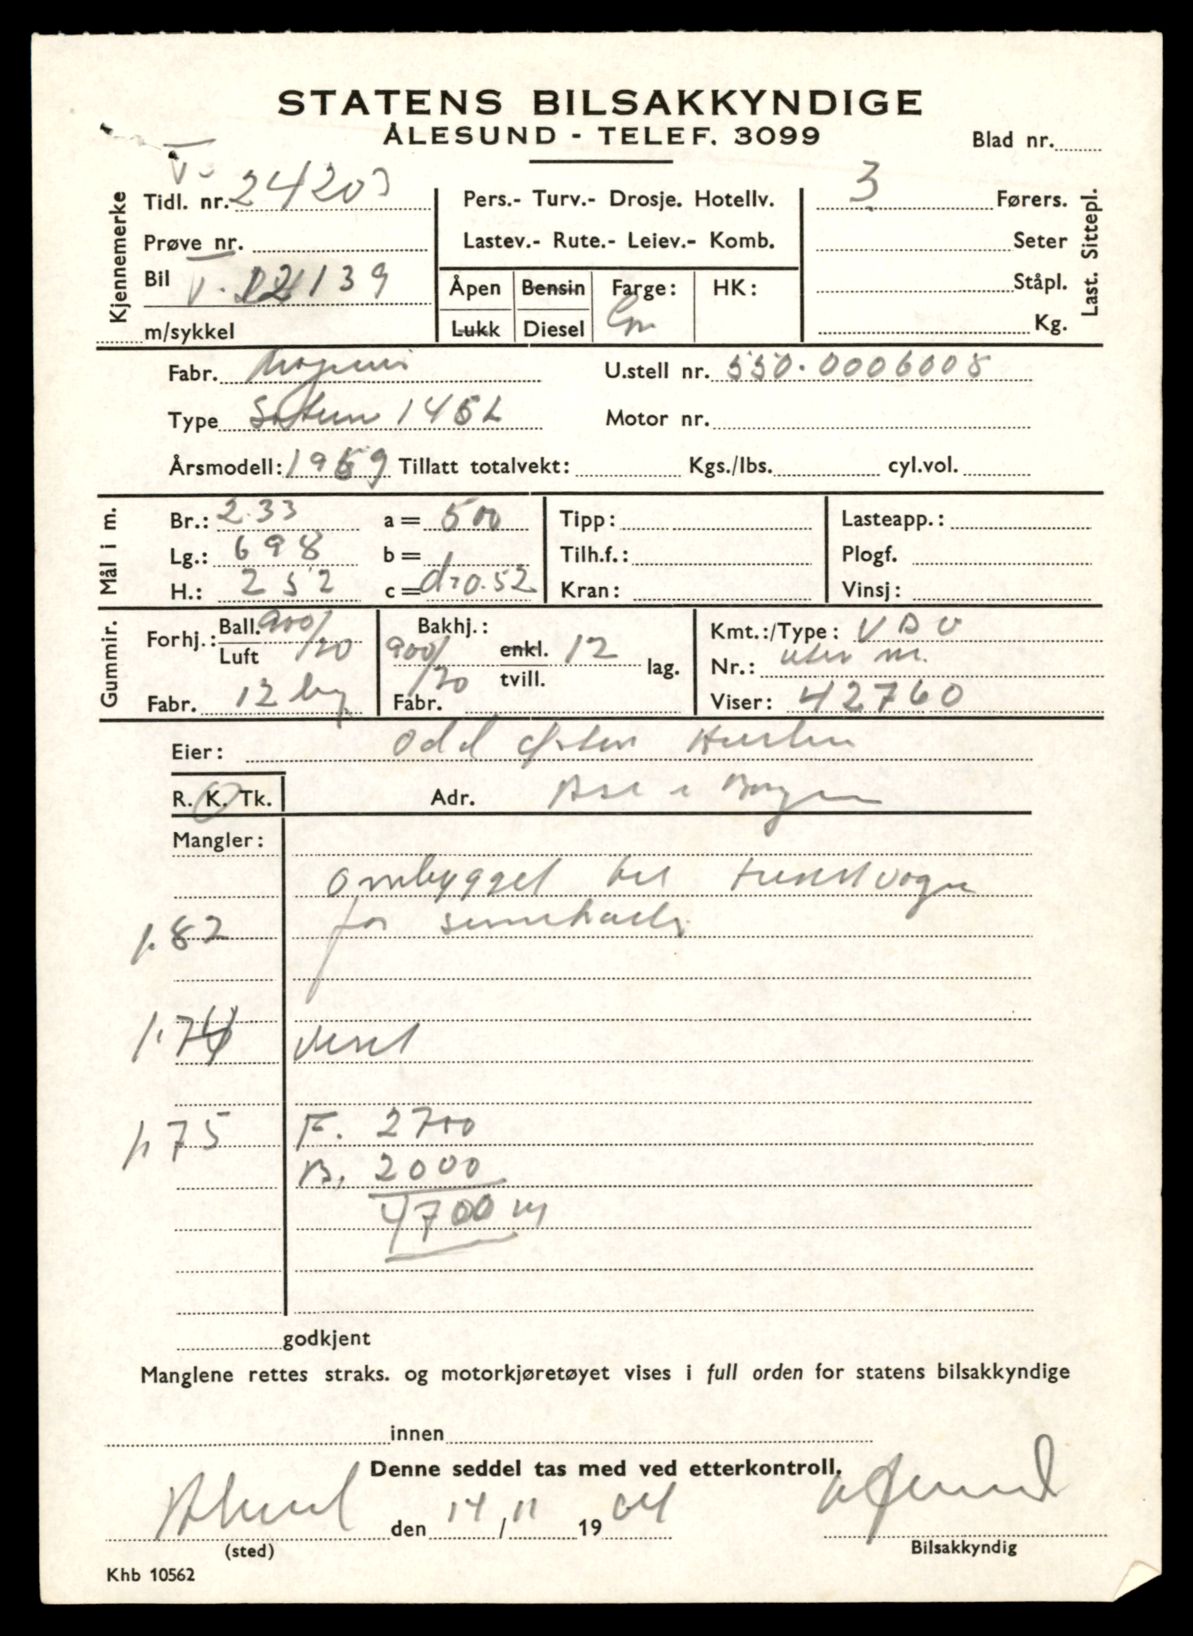 STATENS BILSAKKYNDIGE
ÅLESUND - TELEF. 3099
Blad nr.
Kjennemerke
Tidl. nr. V- 24203
Prøve nr.
Bil V. 12139
m/sykkel
Pers.- Turv.- Drosje. Hotellv.
Lastev.- Rute.- Leiev.- Komb.
Åpen Bensin Farge: HK:
Lukk Diesel Grå
3 Førers.
Seter
Ståpl.
Kg.
Last. Sittepl.
Fabr. Magirus U.stell nr. 550.0006008
Type Saturn 145L Motor nr.
Årsmodell: 1959 Tillatt totalvekt: Kgs./lbs. cyl.vol.
Mål i m.
Br.: 2.33 a = 500 Tipp: Lasteapp.:
Lg.: 698 b = Tilh.f.: Plogf.
H.: 252 c = d=0.52 Kran: Vinsj:
Gummir.
Forhj.: Ball. Luft 900/20
Fabr. 12 lag
Bakhj.: 900/20 enkl. tvill. 12 lag.
Fabr.
Kmt.:/Type: VDO
Nr.: uten nr.
Viser: 42760
Eier: Odd
R. K. Tk. Adr. Ase i
Mangler:
Ombygget til
1.82 for
1.74 Vekt
1.75 F. 2700
B. 2000
4700
godkjent
Manglene rettes straks. og motorkjøretøyet vises i full orden for statens bilsakkyndige
innen
Denne seddel tas med ved etterkontroll.
Ålesund den 14/11 1964
(sted) Bilsakkyndig
Khb 10562